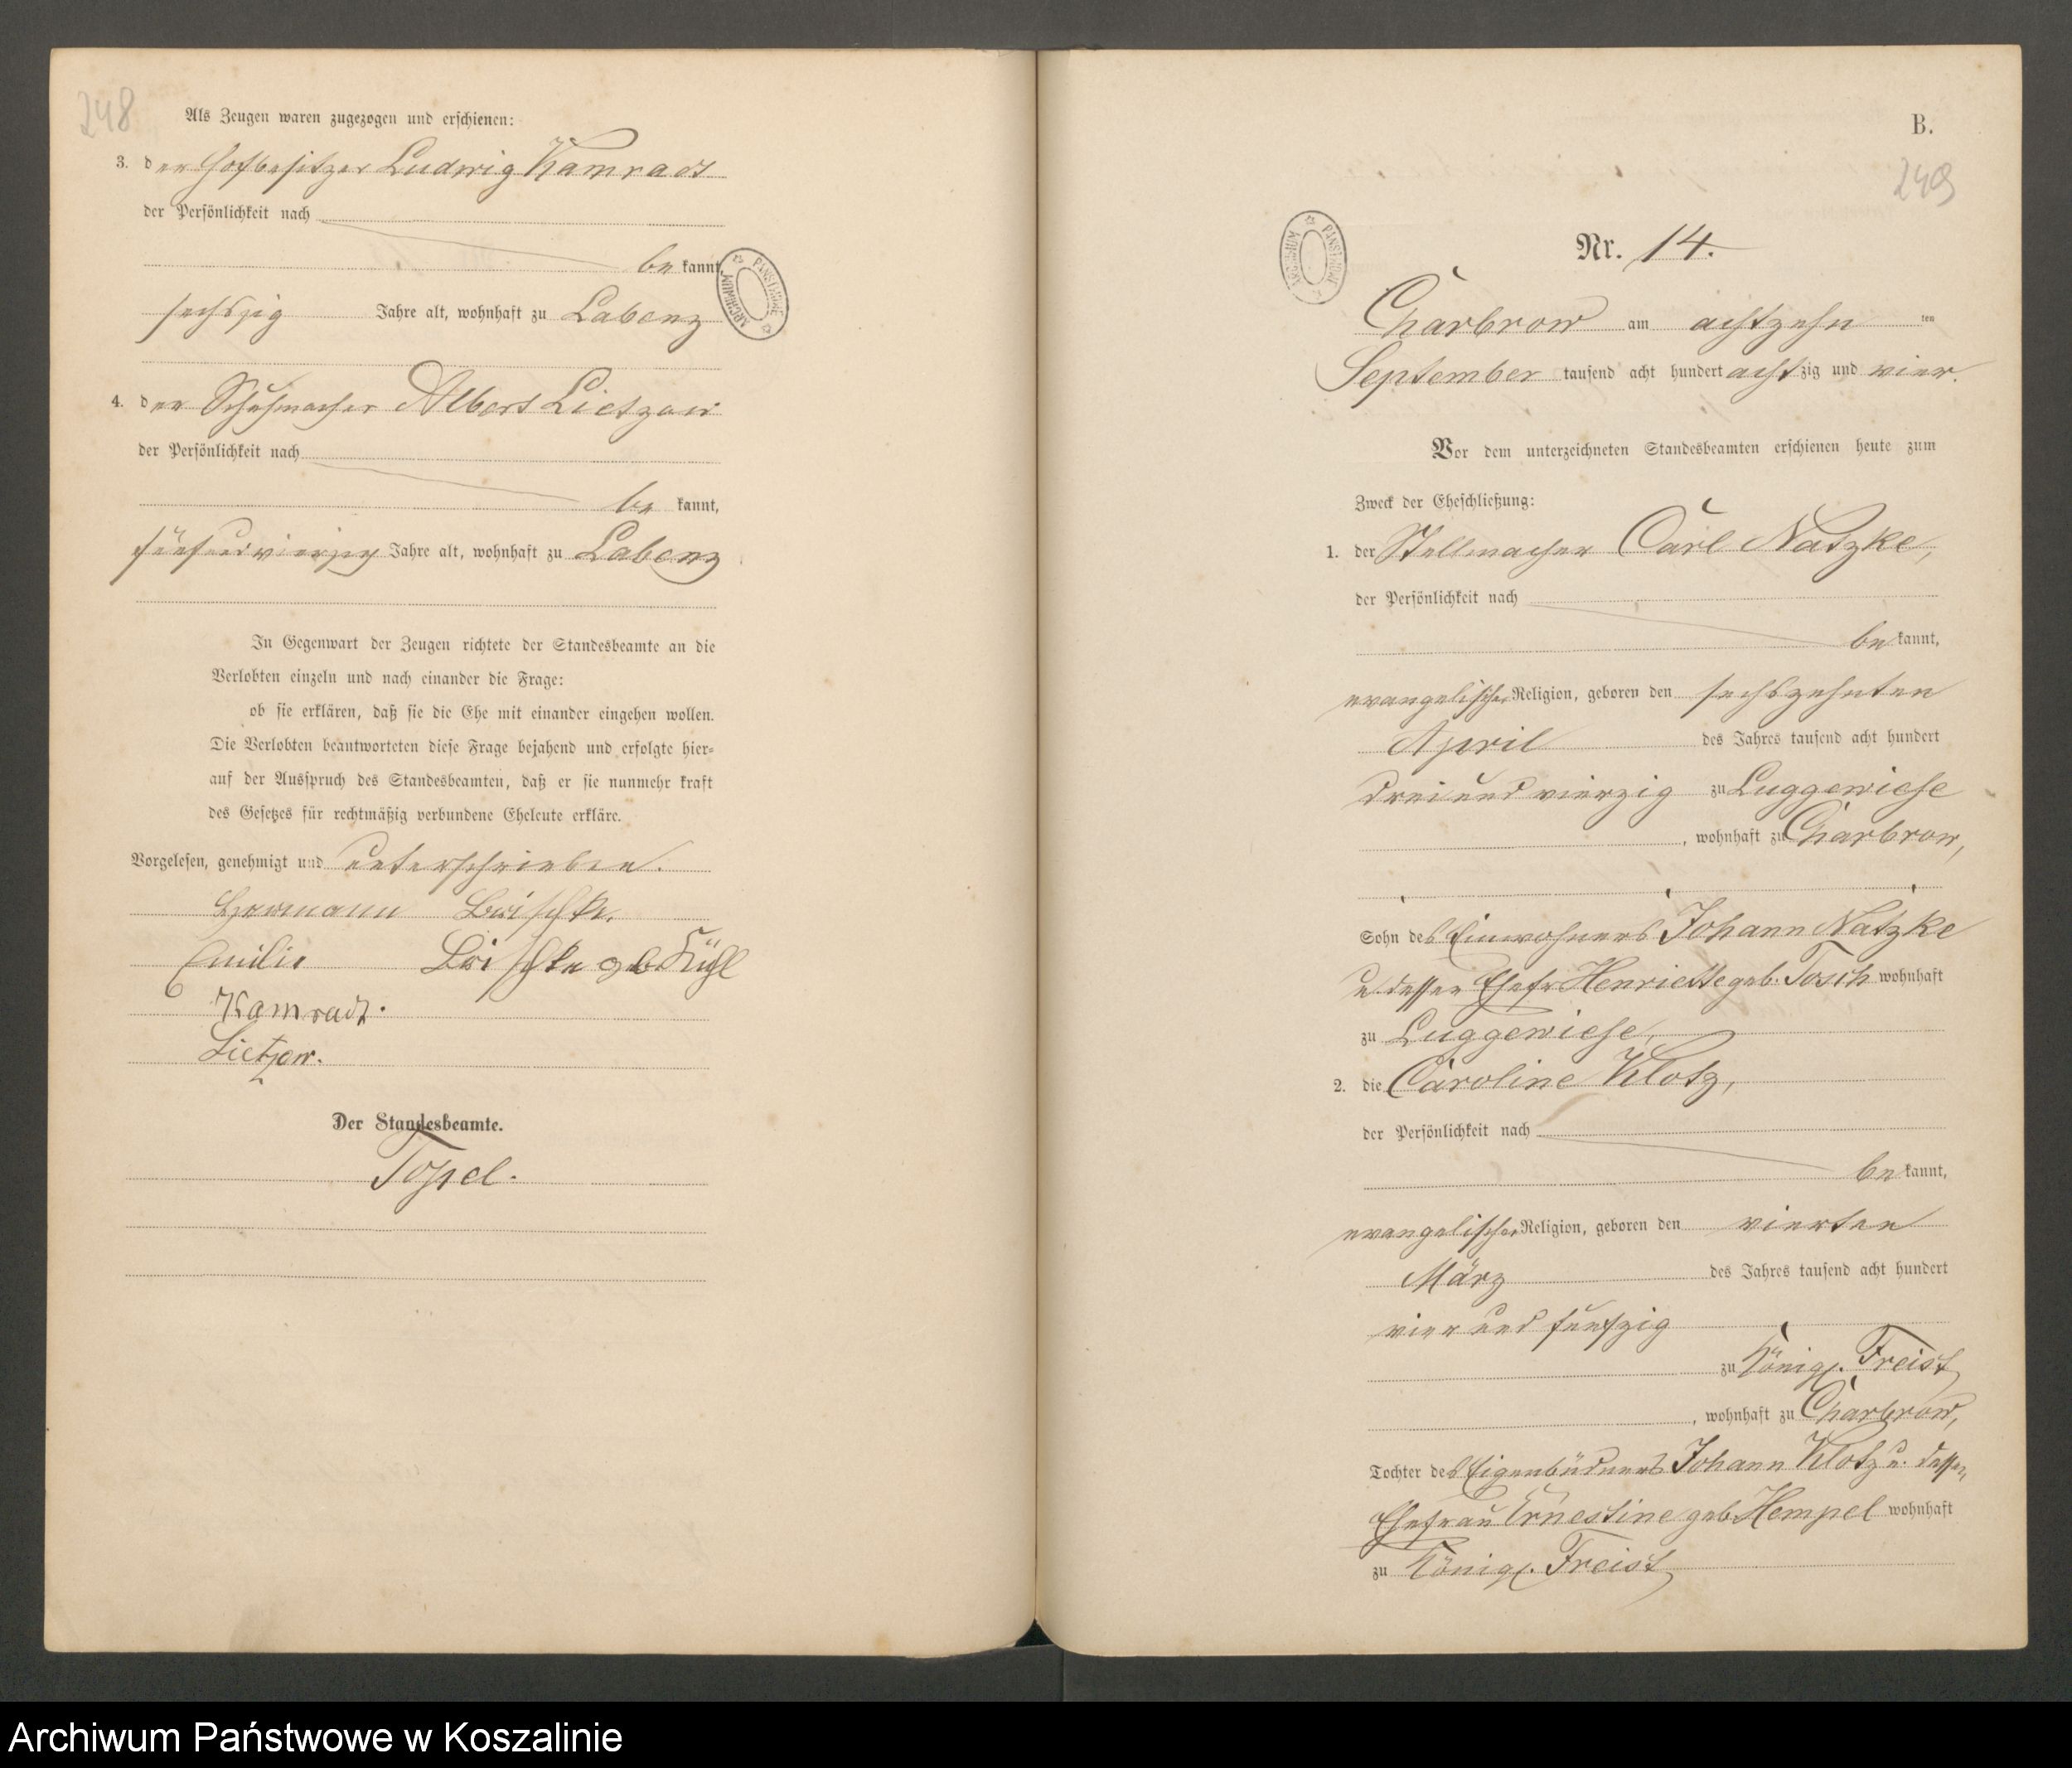 248
Als Zeugen waren zugezogen und erschienen:
3. der Hofbesitzer Ludwig Kamradt
der Persönlichkeit nach
be kannt,
sechszig Jahre alt, wohnhaft zu Labenz
4. der Schuhmacher Albert Lietzow
der Persönlichkeit nach
be kannt,
fünfundvierzig Jahre alt, wohnhaft zu Labenz
In Gegenwart der Zeugen richtete der Standesbeamte an die
Verlobten einzeln und nach einander die Frage:
ob sie erklären, daß sie die Ehe mit einander eingehen wollen.
Die Verlobten beantworteten diese Frage bejahend und erfolgte hier-
auf der Ausspruch des Standesbeamten, daß er sie nunmehr kraft
des Gesetzes für rechtmäßig verbundene Eheleute erkläre.
Vorgelesen, genehmigt und unterschrieben.
Hermann
Emilie geb.
Kamradt.
Lietzow.
Der Standesbeamte.
Topel.
ARCHIWUM PAŃSTWOWE
B.
249
ARCHIWUM PAŃSTWOWE
Nr. 14.
Charbrow am achtzehn ten
September tausend acht hundert achtzig und vier.
Vor dem unterzeichneten Standesbeamten erschienen heute zum
Zweck der Eheschließung:
1. der Stellmacher Carl Natzke,
der Persönlichkeit nach
be kannt,
evangelischer Religion, geboren den sechszehnten
April des Jahres tausend acht hundert
drei und vierzig zu Luggewiese
, wohnhaft zu Charbrow,
Sohn des Einwohners Johann Natzke
u. dessen Ehefr Henriette geb. Tosch wohnhaft
zu Luggewiese,
2. die Caroline Klotz,
der Persönlichkeit nach
be kannt,
evangelischer Religion, geboren den vierten
März des Jahres tausend acht hundert
vier und fünfzig
zu Königl. Freist
, wohnhaft zu Charbrow,
Tochter des Eigenbüdners Johann Klotz u. dessen
Ehefrau Ernestine geb. Hempel wohnhaft
zu Königl. Freist
Archiwum Państwowe w Koszalinie